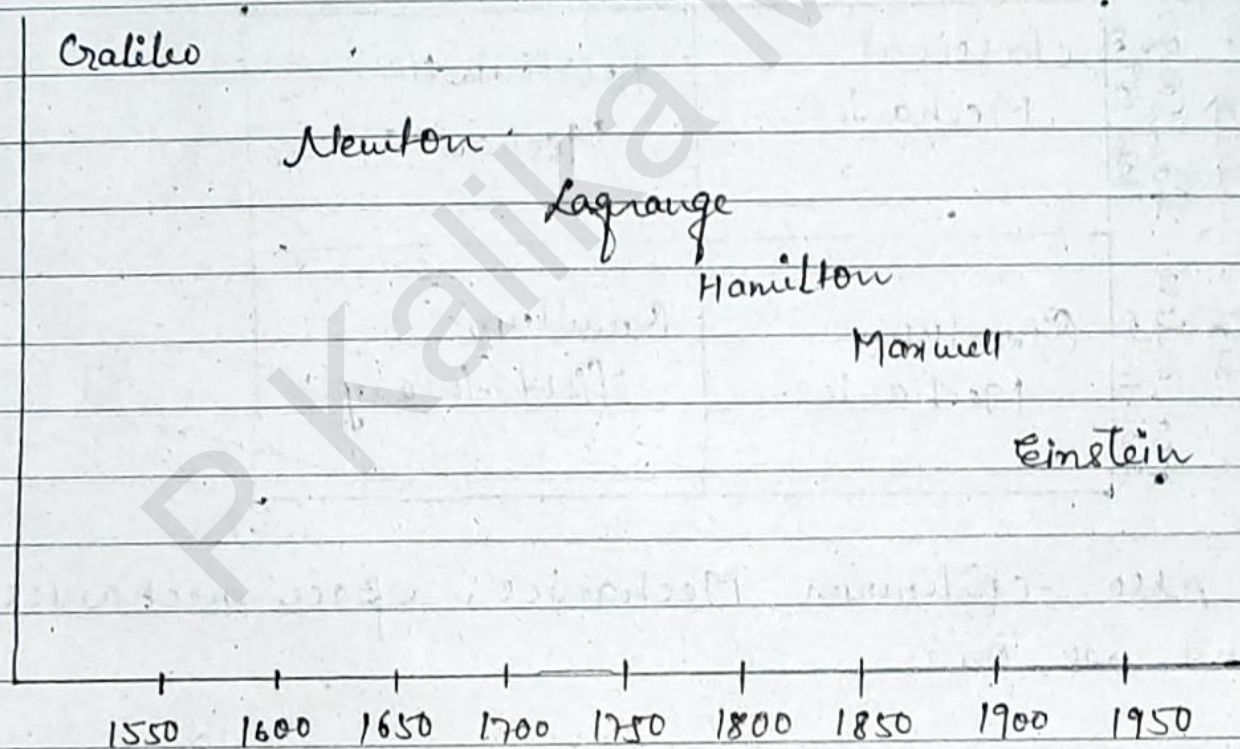 Galileo
Newton
Lagrange
Hamilton
Maxwell
Einstein
1550 1600 1650 1700 1750 1800 1850 1900 1950
P Kalika